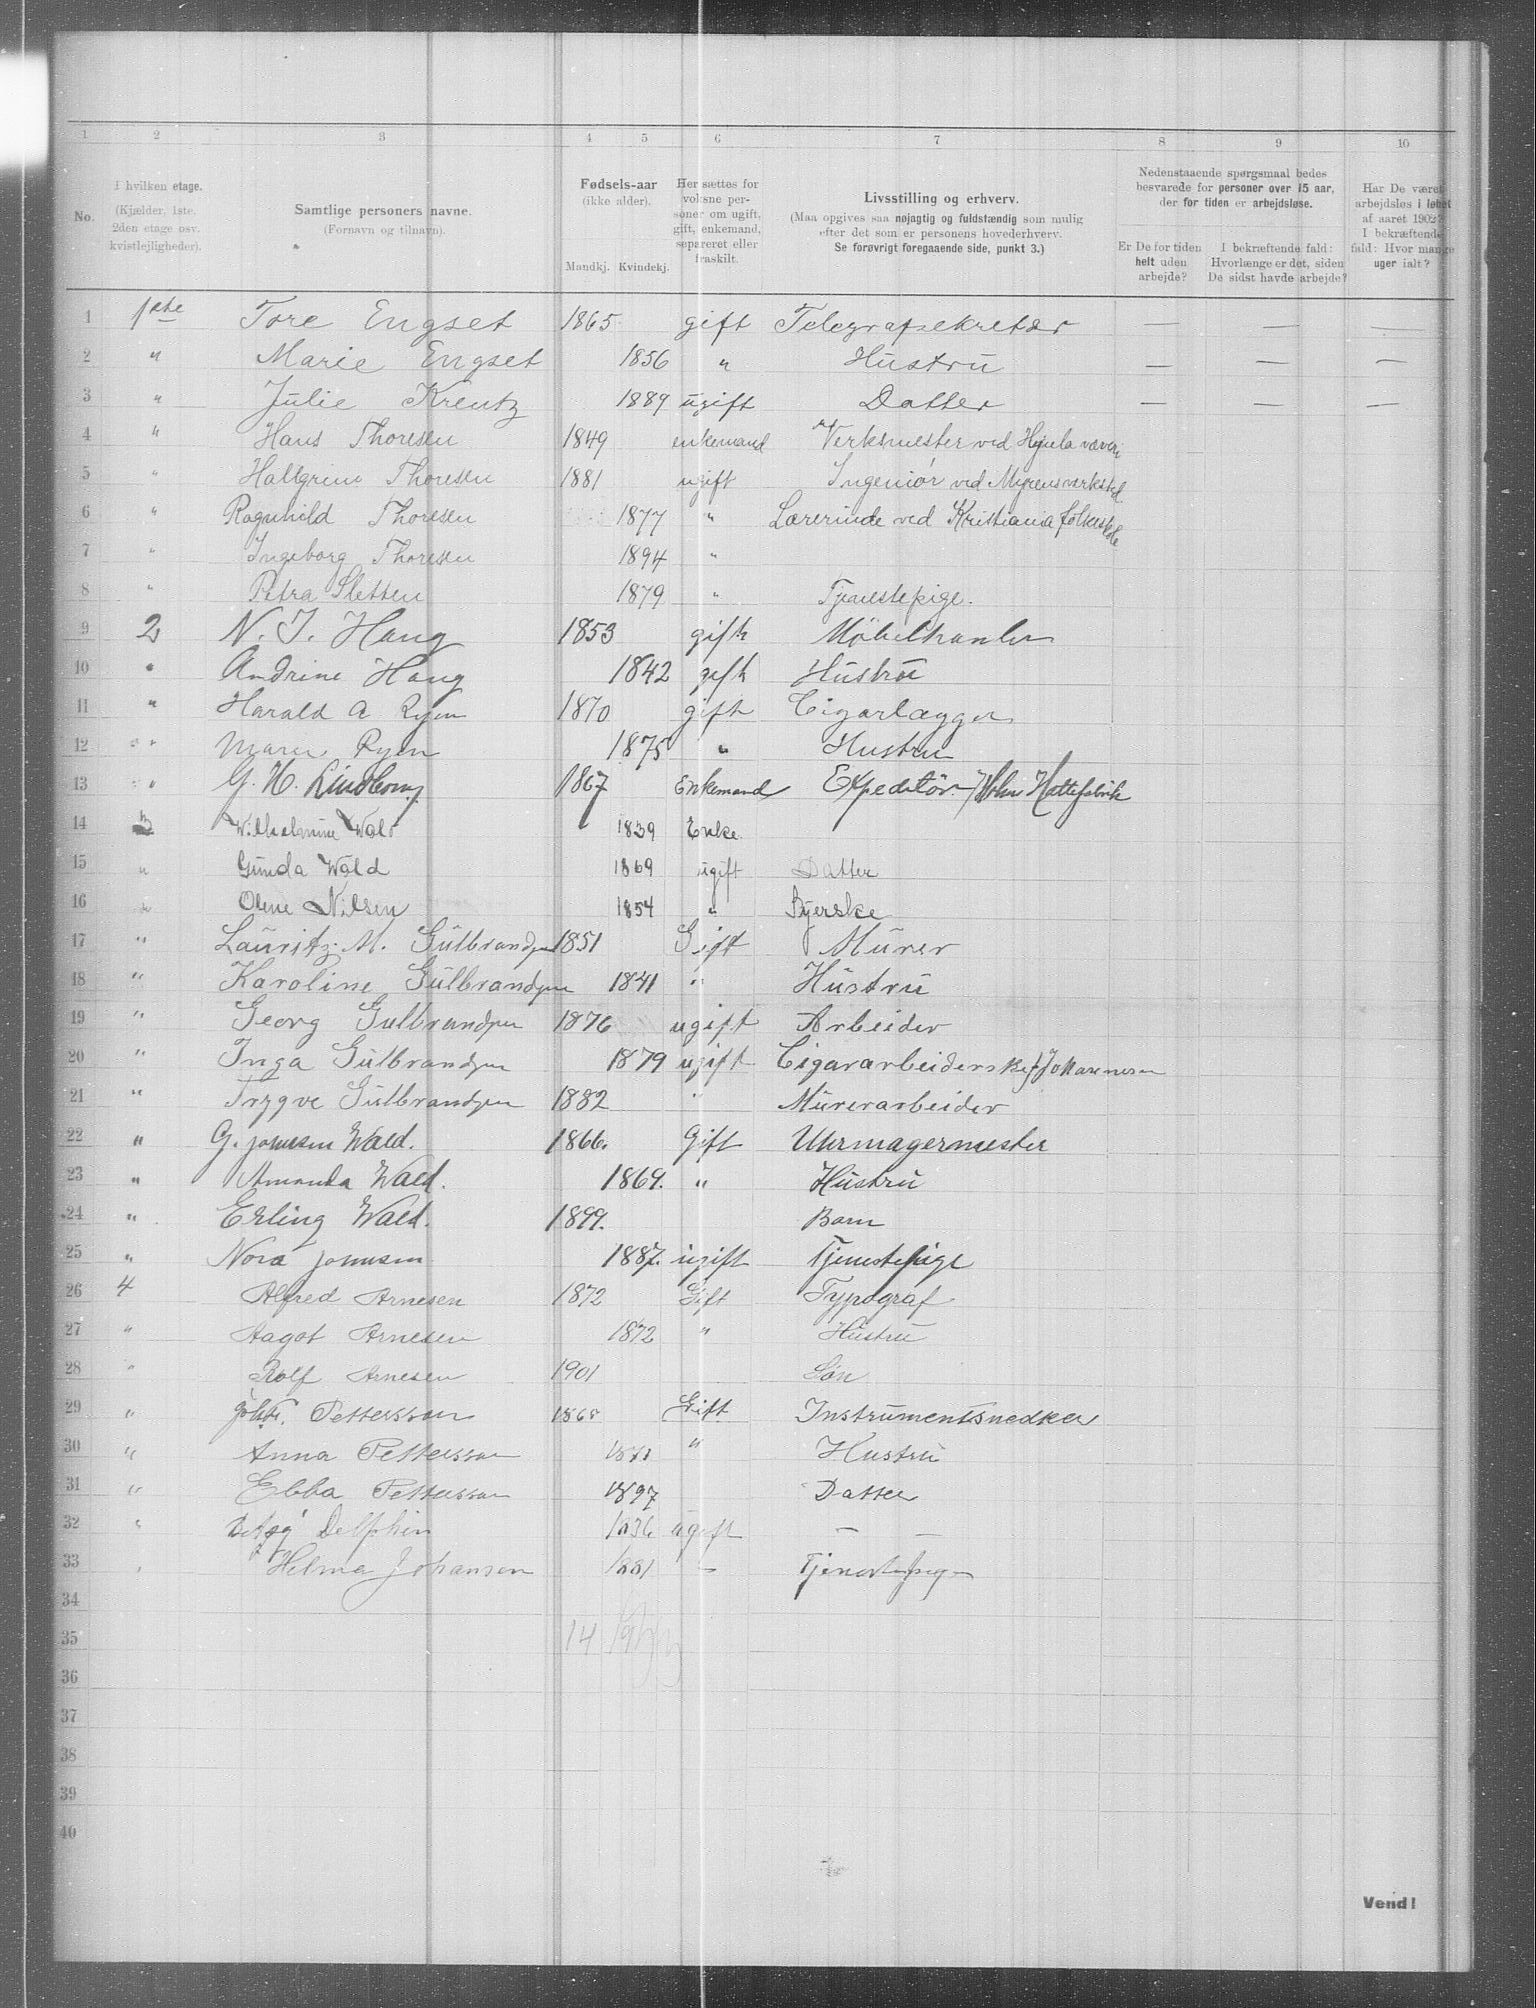 1 2 3 4 5 6 7 8 9 10
No. I hvilken etage. (Kjælder, 1ste, 2den etage osv. kvistlejligheder). Samtlige personers navne. (Fornavn og tilnavn). Fødsels-aar (ikke alder). Mandkj. Kvindekj. Her sættes for voksne personer om ugift, gift, enkemand, separeret eller fraskilt. Livsstilling og erhverv. (Maa opgives saa nøjagtig og fuldstændig som mulig efter det som er personens hovederhverv. Se forøvrigt foregaaende side, punkt 3.) Nedenstaaende spørgsmaal bedes besvarede for personer over 15 aar, der for tiden er arbejdsløse. Er De for tiden helt uden arbejde? I bekræftende fald: Hvorlænge er det, siden De sidst havde arbejde? Har De været arbejdsløs i løbet af aaret 1902? I bekræftende fald: Hvor mange uger ialt?
1 1ste Tore Engset 1865 gift Telegrafsekretær — — —
2 " Marie Engset 1856 " Hustru — — —
3 " Julie Kreutz 1889 ugift Datter — — —
4 " Hans Thoresen 1849 enkemand Verksmester ved Hjula væveri
5 " Hallgrim Thoresen 1881 ugift Ingeniør ved Myrens verksted
6 " Ragnhild Thoresen 1877 " Lærerinde ved Kristiania folkeskole
7 " Ingeborg Thoresen 1894 "
8 " Petra Sletten 1879 " Tjenestepige.
9 2 N. J. Haug 1853 gift Møbelhanler
10 " Andrine Haug 1842 gift Hustru
11 " Harald A Ryen 1870 gift Cigarlægger
12 " Maren Ryen 1875 " Hustru
13 " G. H. Lindborg 1867 Enkemand Expeditør Hattefabrik
14 3 Wilhelmine Wald 1839 Enke
15 " Gunda Wald 1869 ugift Datter
16 " Oline Nilsen 1854 " Syerske
17 " Lauritz M. Gulbrandsen 1851 Gift Murer
18 " Karoline Gulbrandsen 1841 " Hustru
19 " Georg Gulbrandsen 1876 ugift Arbeider
20 " Inga Gulbrandsen 1879 ugift Cigararbeiderske Johannesen
21 " Trygve Gulbrandsen 1882 " Murerarbeider
22 " G. Jonsen Wald. 1866. Gift Uhrmagermester
23 " Amanda Wald. 1869. " Hustru
24 " Erling Wald. 1899. Barn
25 " Nora Jonsen 1887. ugift Tjenestepige
26 4 Alfred Arnesen 1872 Gift Typograf
27 " Aagot Arnesen 1872 " Hustru
28 " Rolf Arnesen 1901 Søn
29 " Pettersson Gift Instrumentsnedker
30 " Anna Pettersson " Hustru
31 " Ebba Pettersson 1897 Datter
32 " Delphin 1836 ugift — —
33 " Helma Johansen 1881 — Tjenestepige
34
35 14 19
36
37
38
39
40
Vend!